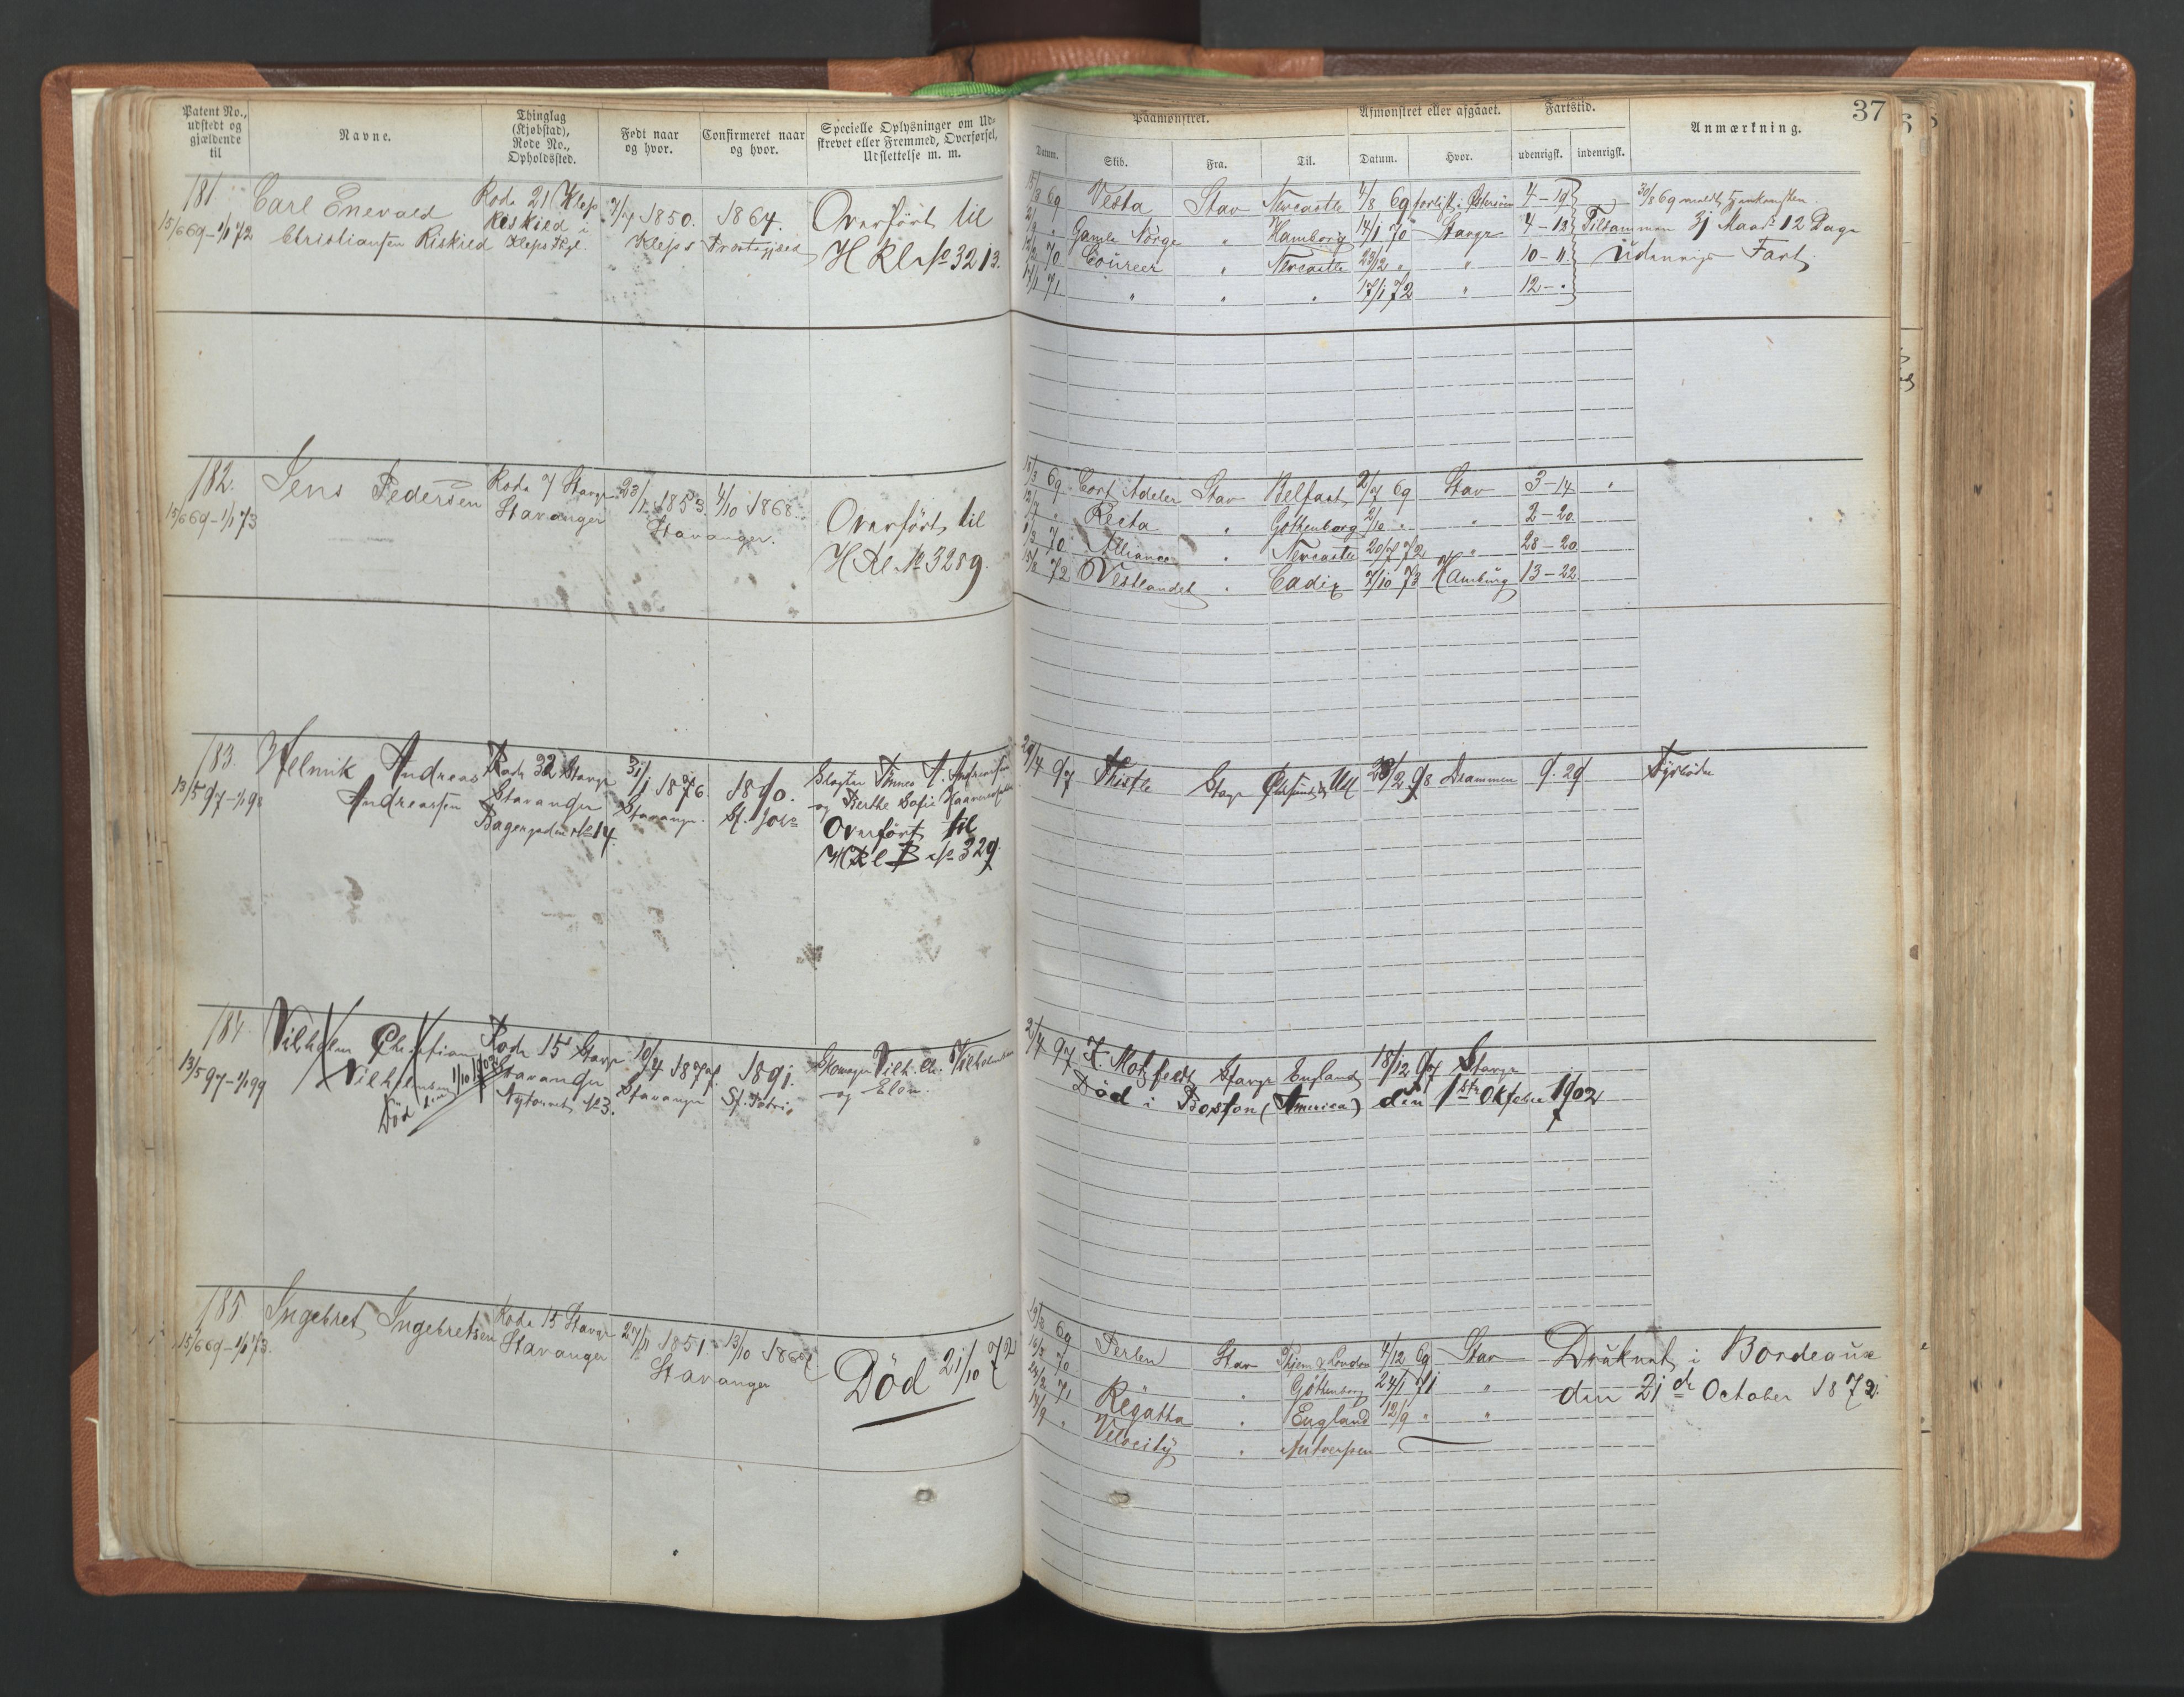 37
Patent No., udstedt og gjældende til
Navne.
Thinglag (Kjøbstad), Rode No., Opholdssted.
Født naar og hvor.
Confirmeret naar og hvor.
Specielle Oplysninger om Udskrevet eller Fremmed, Overførsel, Udslettelse m. m.
Paamønstret.
Afmønstret eller afgaaet.
Fartstid.
Anmærkning.
Datum.
Skib.
Fra.
Til.
Datum.
Hvor.
udenrigsk.
indenrigsk.
181
15/6 69 - 1/1 72
Carl Enevald
Christiansen Riskied
Rode 21 Klep
Riskied i
Kleps
1850.
Kleps
1864.
Præstegjeld
Overført til
H Rl No 3213.
69 Vesta Stav Newcastle 4/8 69 forlist i Østersøen 4 - 19
" Gamle Norge " Hamborg 14/1 70 Stavgr 4 - 13
70 Coureer " Newcastle 23/12 " " 10 - 11
71 " " " 17/1 72 " 12 - "
30/8 69 meldt Hjemkomsten.
Tilsammen 31 Maad. 12 Dage
Udenrigs Fart.
182.
15/6 69 - 1/1 73
Jens Pedersen
Rode 7 Stavgr
Stavanger
1853.
4/10 1868.
Stavanger.
Overført til
H Rl. No 3289.
69 Cort Adeler Stav Belfast 2/7 69 Stav 3 - 14 "
" Recta " Gøthenborg 2/10 " " 2 - 20
70 Alliance " Newcastle 20/7 72 " 28 - 20
72 Vestlandet " Cadix 7/10 73 Hamburg 13 - 22
183.
13/5 97 - 1/1 98
Helmik Andreas
Andreassen
Rode 32 Stavgr
Stavanger
Bagergaden No 14.
31/1 1876.
Stavangr.
1890.
St. Joh.
Slagter A. Andreassen
og Berthe Sofie
Overført til
H Rl B No 329.
29/4 97 Thistle Stavgr 23/2 98 Drammen 9. 29
Fyrbøder
184
13/5 97 - 1/1 99
Vilhelm Christian
Vilhelmsen
Død den 1/10 1902
Rode 15 Stavgr
Stavanger
Nytorvet No 3.
10/4 187
Stavanger
1891.
St. Petri.
Vilh. Chr. Vilhelmsen
og Elen.
2/4 97 K. Motzfeldt Stavgr England 18/12 97 Stavgr
Død i Boston (America) den 1ste Oktober 1902
185
15/6 69 - 1/1 73.
Ingebret Ingebretsen
Rode 15 Stavgr
Stavanger
27/11 1851.
13/10 186
Stavanger
Død 21/10 72
69 Perlen Stav London 4/12 69 Stav
70 " Gøthenborg 24/1 71 "
71 Regatta " England 12/9 " "
14/9 " Velocity " Antwerpen
Druknet i Bordeaux
den 21de October 1872.